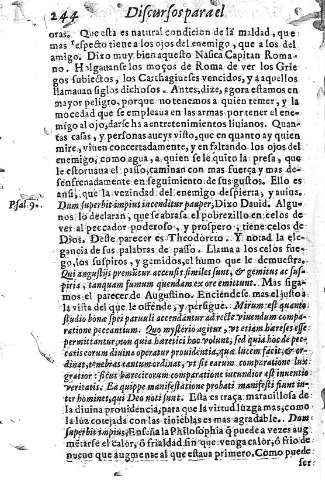 244 Discursos para el
oras. Que esta es natural condicion de la maldad, que
mas respecto tiene a los ojos del enemigo, que a los del
amigo. Dixo muy bien aquesto Nasica Capitan Roma-
no. Holgauanse los moços de Roma de ver los Grie
gos subiectos, los Carthagineses vencidos, y a aquellos
llamauan siglos dichosos. Antes, dize, agora estamos en
mayor peligro, porque no tenemos a quien temer, y la
mocedad que se empleaua en las armas por temer el ene-
migo al ojo, darse ha a entretenimientos liuianos. Quan
tas casas, y personas aueys visto, que en quanto ay quien
mire, viuen concertadamente, y en faltando los ojos del
enemigo, como agua, a quien se le quito la presa, que
le estoruaua el passo, caminan con mas fuerza y mas de-
senfrenadamente en seguimiento de sus gustos. Ello es
ansi, que la vezindad del enemigo despierta, y auiua.
Psal. 9. Dum superbit impius incenditur pauper, Dixo Dauid. Algu-
nos lo declaran, que se abrasa el pobrezillo en celos de
ver al peccador poderoso, y prospero, tiene celos de
Dios. Deste parecer es Theodoreto. Y notad la ele-
gancia de sus palabras de passo. Llama a los celos fue-
go, los suspiros, y gemidos, el humo que le demuestra.
Qui angustijs premuntur accensis similes sunt, & gemitus ac sus-
piria, tanquam fumum quendam ex ore emittunt. Mas siga-
mos el parecer de Augustino. Enciendese mas el justo a
la vista del que le ofende, y persigue. Mirum est quanto
studio bonæ spei paruuli accendantur ad recte viuendum com-
paratione peccantium. Quo mysterio agitur, vt etiam hæreses esse
permittantur, non quia hæretici hoc volunt, sed quia hoc de pec-
catis eorum diuina operatur prouidentia, quæ lucem facit, & or-
dinat, tenebras tantum ordinat, vt sit earum comparatione lux
gratior: sicut hæreticorum comparatione iucundior est inuentio
veritatis. Ea quippe manifestatione probati manifesti fiunt in-
ter homines, qui Deo noti sunt. Esta es traça marauillosa de
la diuina prouidencia, para que la virtud luzga mas, como
la luz cotejada con las tinieblas es mas agradable. Dum
superbit impius, Enseña la Philosophia que puede a vezes aug
mentarse el calor, o frialdad sin que venga calor, o frio de
nueuo que augmente al que estaua primero. Como puede
ser